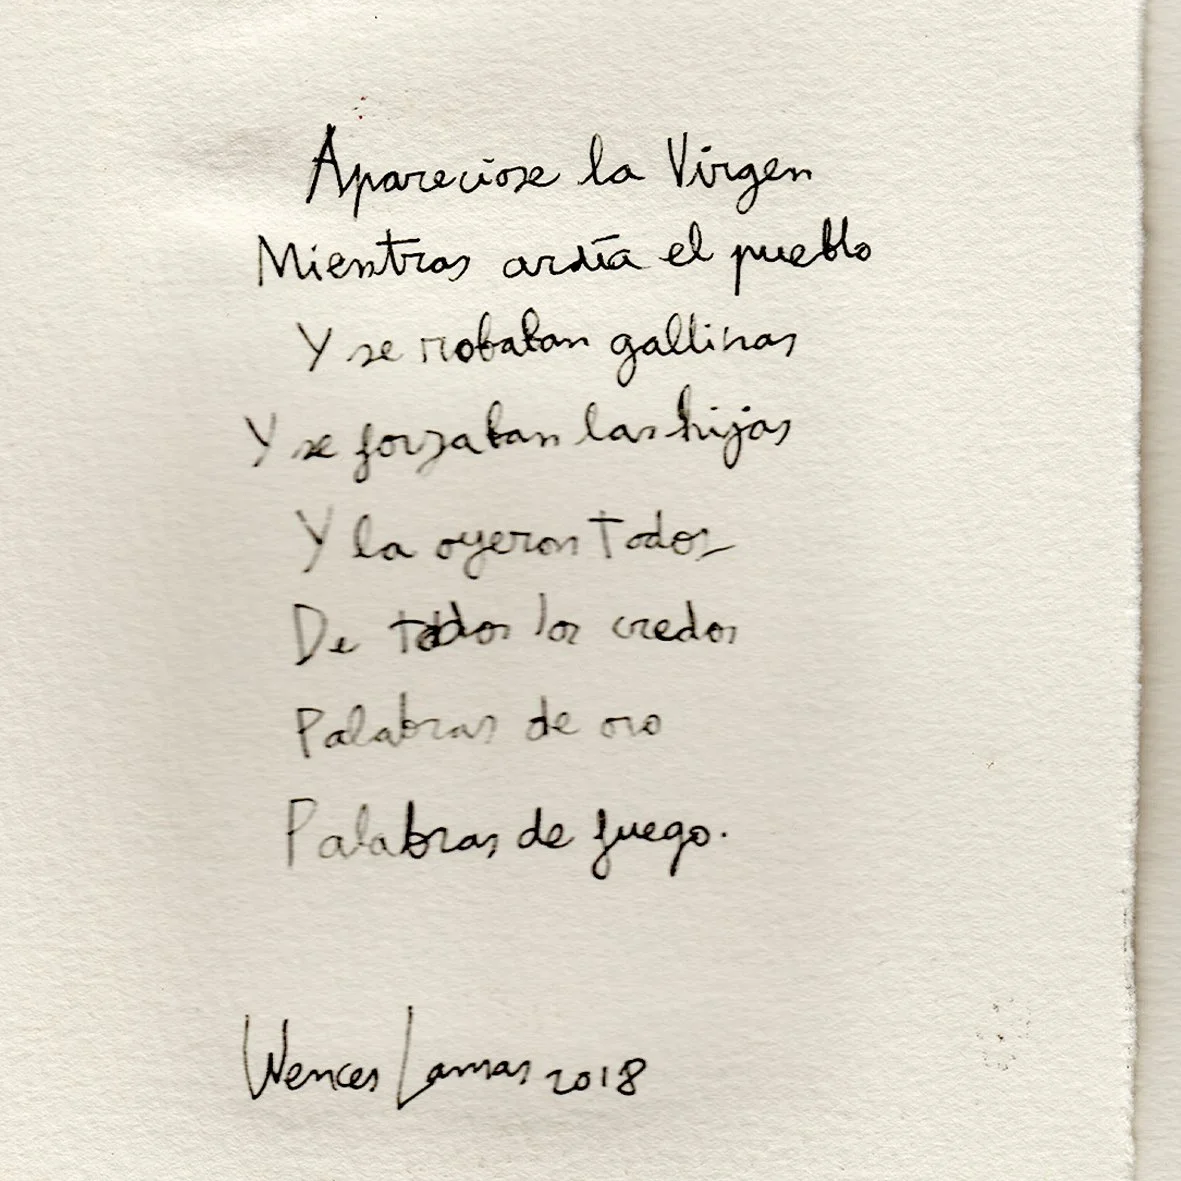 Apareciose la Virgen
Mientras ardía el pueblo
Y se robaban gallinas
Y se forzaban las hijas
Y la oyeron todos
De todos los credos
Palabras de oro
Palabras de fuego.
Wences Lamas 2018